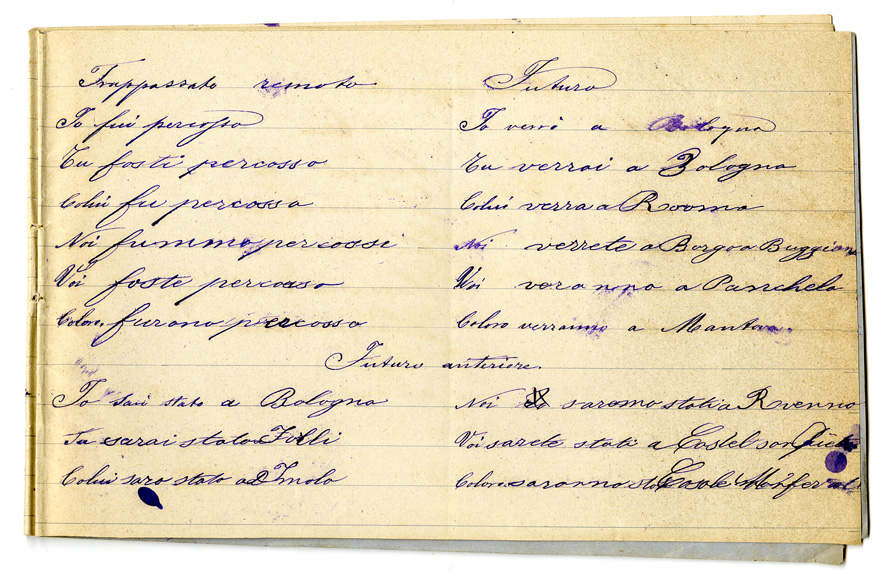 Trappassato remoto
Io fui percosso
Tu fosti percosso
Colui fu percosso
Noi fummo percossi
Voi foste percosso
Coloro furono percosso
Futuro
Io verrò a Bologna
Tu verrai a Bologna
Colui verra a Rooma
Noi verrete a Borgo a Buggiano
Voi veranno a Panchela
Coloro verranno a Mantova
Futuro anteriore.
Io sarò stato a Bologna
Tu sarai stato Folli
Colui saro stato a Imola
Noi saremo stati a Rvenno
Voi sarete stati a Castel san Pietro
Coloro saranno sta Casale Monfer